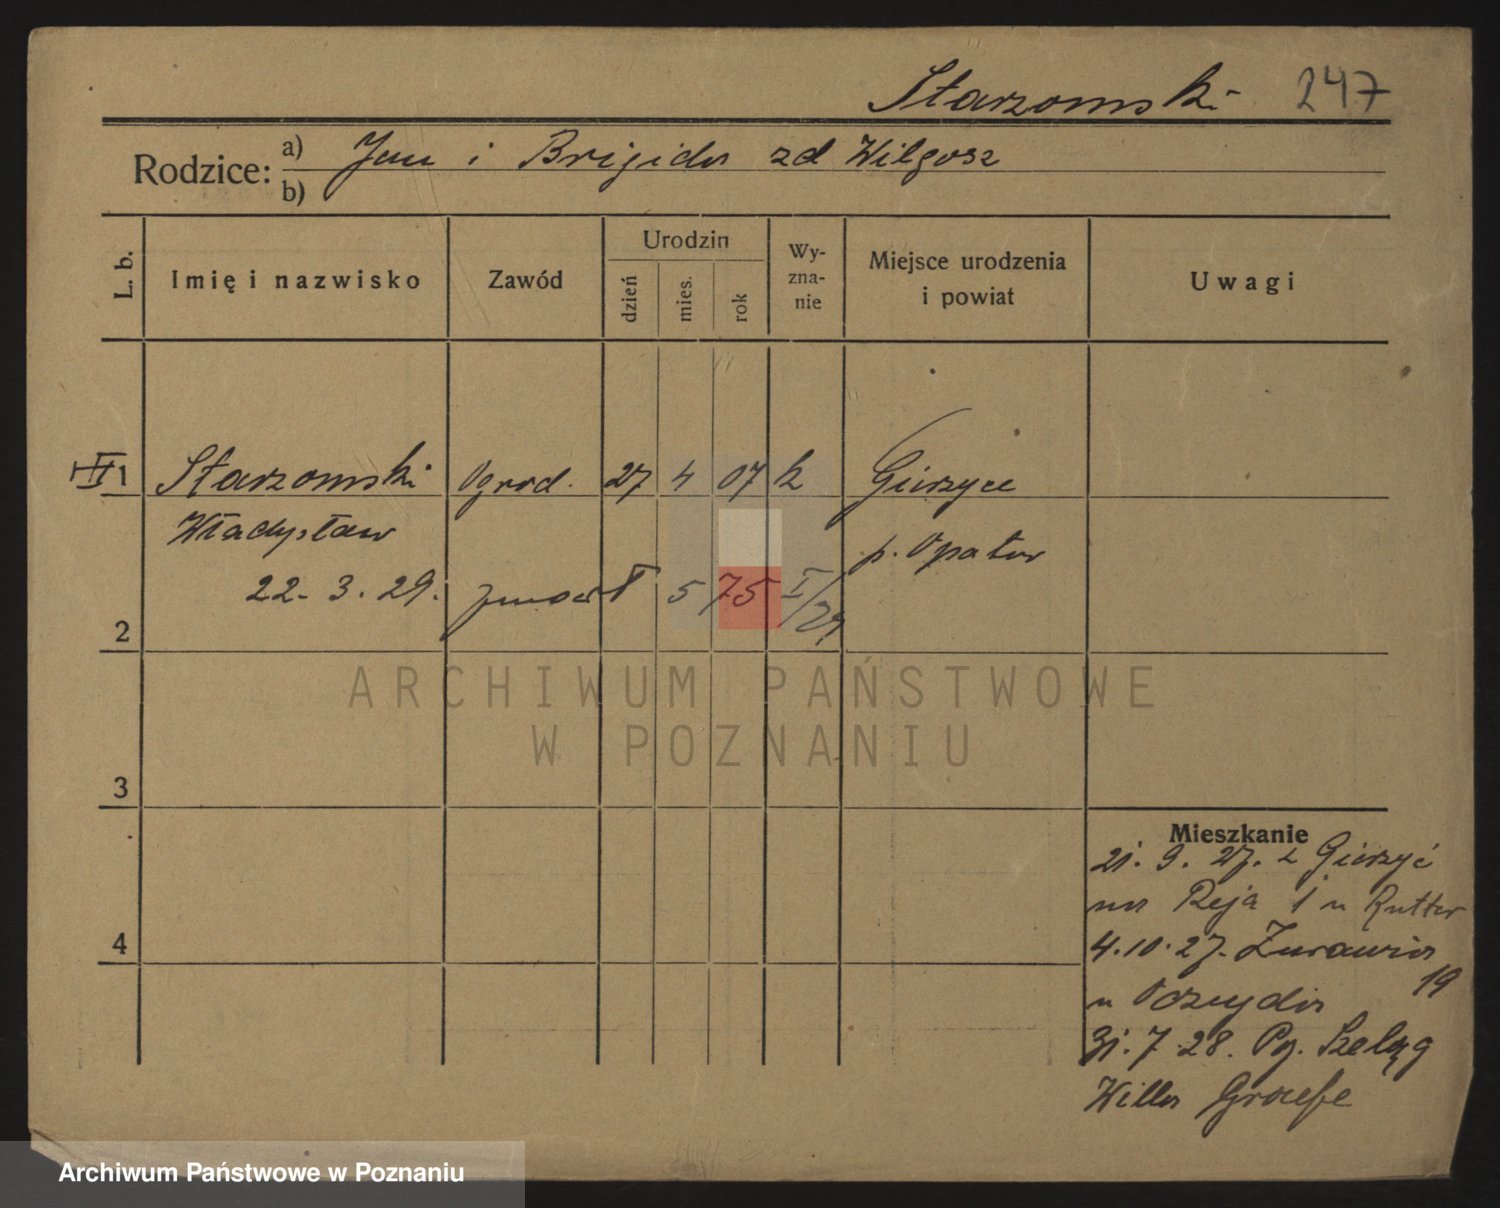 Starzomski 247
Rodzice: a) Jan i Brigida zd Wilgosz
b)
L. b.
Imię i nazwisko
Zawód
Urodzin
dzień
mies.
rok
Wy-
zna-
nie
Miejsce urodzenia
i powiat
Uwagi
1 Starzomski Ogrod. 27 4 07 k Gierzyce
Władysław p. Opatow
22. 3. 29. 5 75 I/29
2
3
4
ARCHIWUM PAŃSTWOWE
W POZNANIU
Mieszkanie
21. 9. 27. z Gierzyć
na Reja 1 u Rutter
4. 10. 27. Zurawia
19
u
31. 7. 28. Pg. Szeląg
Willa Graefe
Archiwum Państwowe w Poznaniu